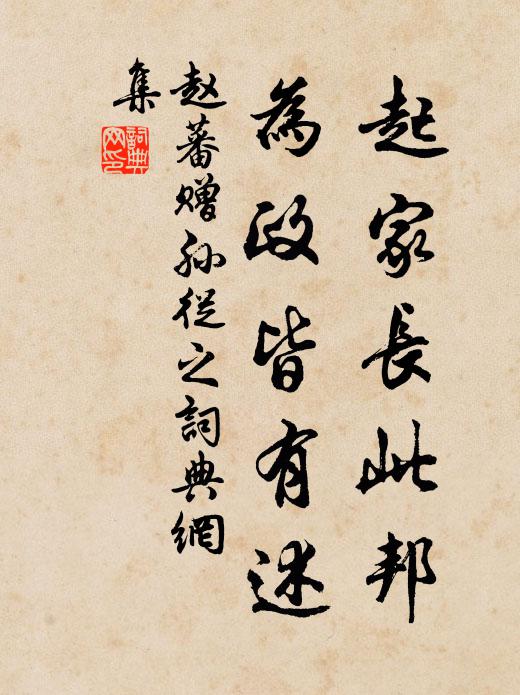 起家長此邦
為政皆有述
赵蕃赠孙從之詞典網
集
詞典
网印